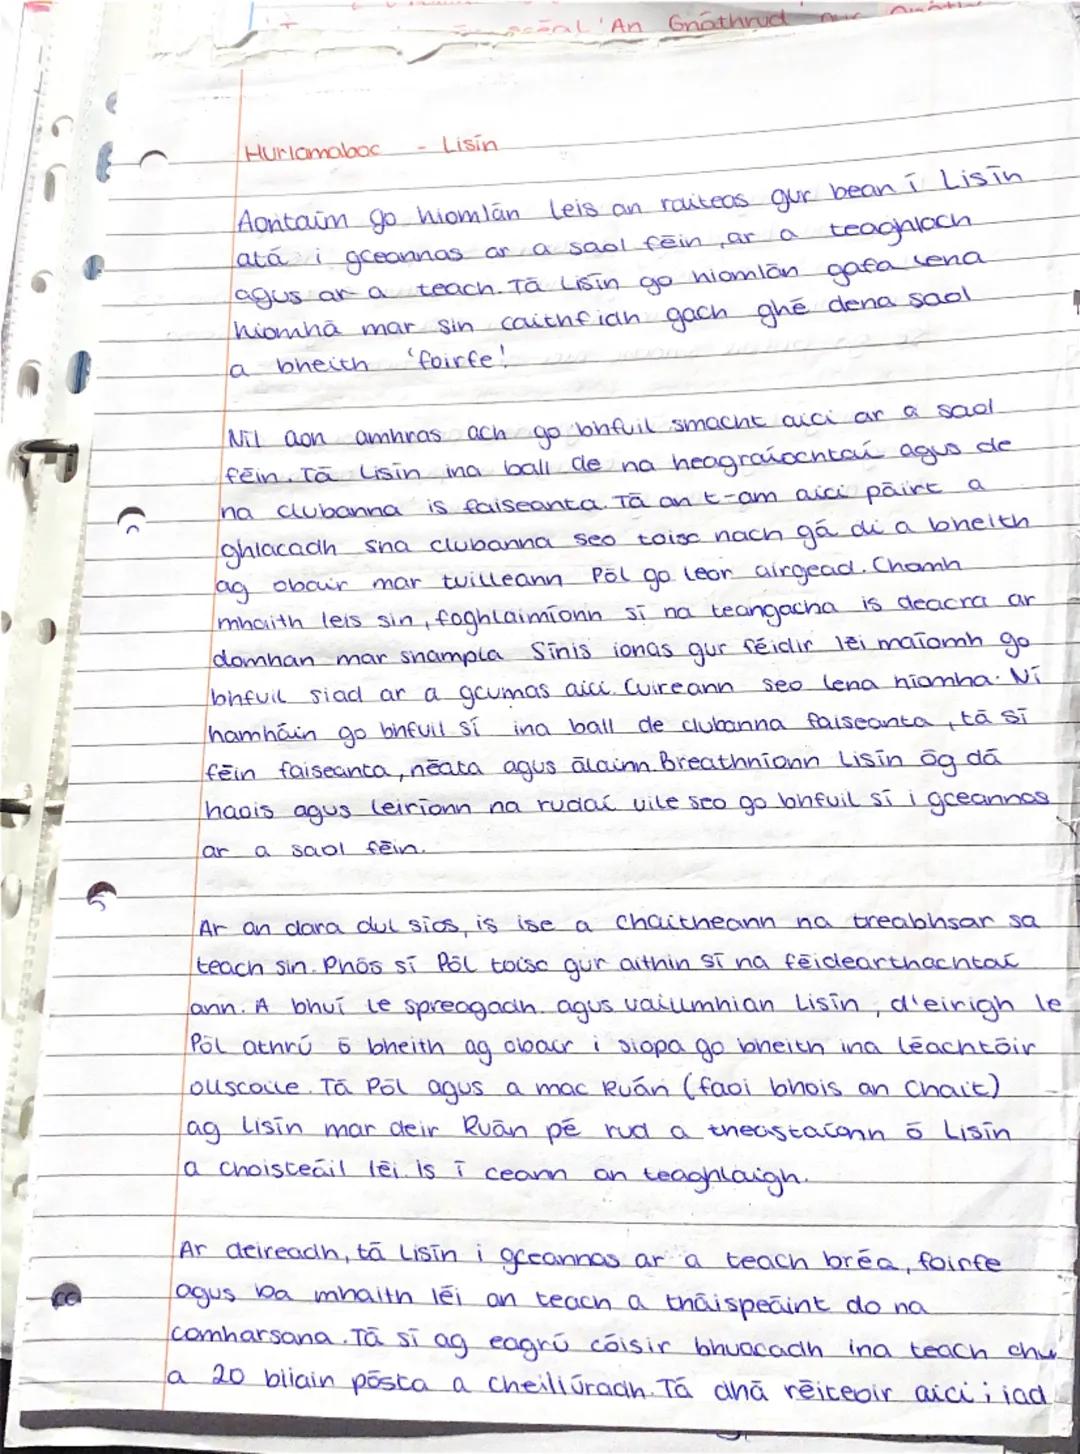 scéal 'An Gnáthrud
Hurlamaboc - Lisín
Aontaím go hiomlán leis an raiteas gur bean í Lisín
atá i gceannas ar a saol féin, ar a teaghlach
agus ar a teach. Tá Lisín go hiomlán gafa lena
híomhá mar sin caithfidh gach ghé dena saol
a bheith 'foirfe!
Níl aon amhras ach go bhfuil smacht aici ar a saol
féin. Tá Lisín ina ball de na heagraíochtaí agus de
na clubanna is faiseanta. Tá an t-am aici páirt a
ghlacadh sna clubanna seo toisc nach gá di a bheith
ag obair mar tuilleann Pól go leor airgead. Chomh
mhaith leis sin, foghlaimíonn sí na teangacha is deacra ar
domhan mar shampla Sínis ionas gur féidir léi maíomh go
bhfuil siad ar a gcumas aici. Cuireann seo lena híomha. Ní
hamháin go bhfuil sí ina ball de clubanna faiseanta, tá sí
féin faiseanta, néata agus álainn. Breathníonn Lisín óg dá
haois agus leiríonn na rudaí uile seo go bhfuil sí i gceannas
ar a saol féin.
Ar an dara dul síos, is ise a chaitheann na treabhsar sa
teach sin. Phós sí Pól toisc gur aithin sí na féidearthachtaí
ann. A bhuí le spreagadh agus uaillmhian Lisín, d'eirigh le
Pól athrú ó bheith ag obair i siopa go bheith ina léachtóir
ollscoile. Tá Pól agus a mac Ruán (faoi bhois an Chait)
ag Lisín mar deir Ruán pé rud a theastaíonn ó Lisín
a choisteáil léi. Is í ceann an teaghlaigh.
Ar deireadh, tá Lisín i gceannas ar a teach bréa, foirfe
agus ba mhaith léi an teach a tháispeáint do na
comharsana. Tá sí ag eagrú cóisir bhuacadh ina teach chun
a 20 bliain pósta a cheiliúradh. Tá dhá réiteoir aici; iad